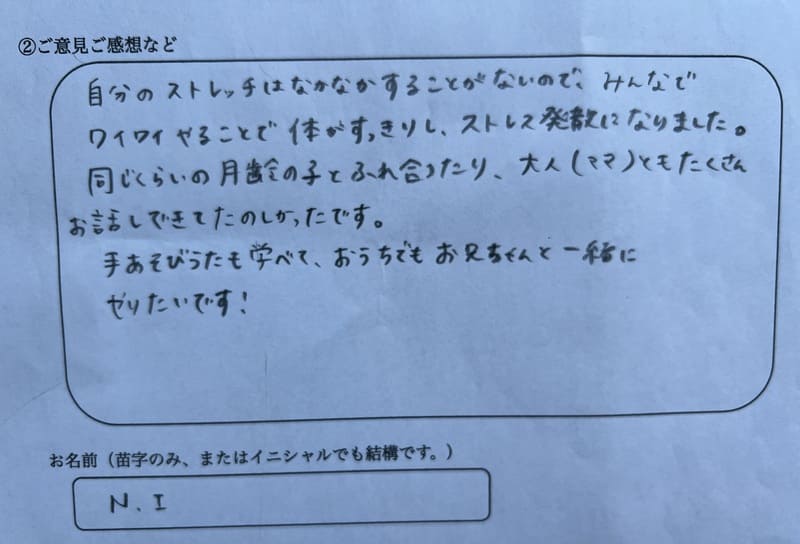 ②ご意見ご感想など
自分のストレッチはなかなかすることがないので、みんなで
ワイワイやることで体がすっきりし、ストレス発散になりました。
同じくらいの月齢の子とふれ合ったり、大人（ママ）ともたくさん
お話しできてたのしかったです。
手あそびうたも学べて、おうちでもお兄ちゃんと一緒に
やりたいです！
お名前（苗字のみ、またはイニシャルでも結構です。）
N.I